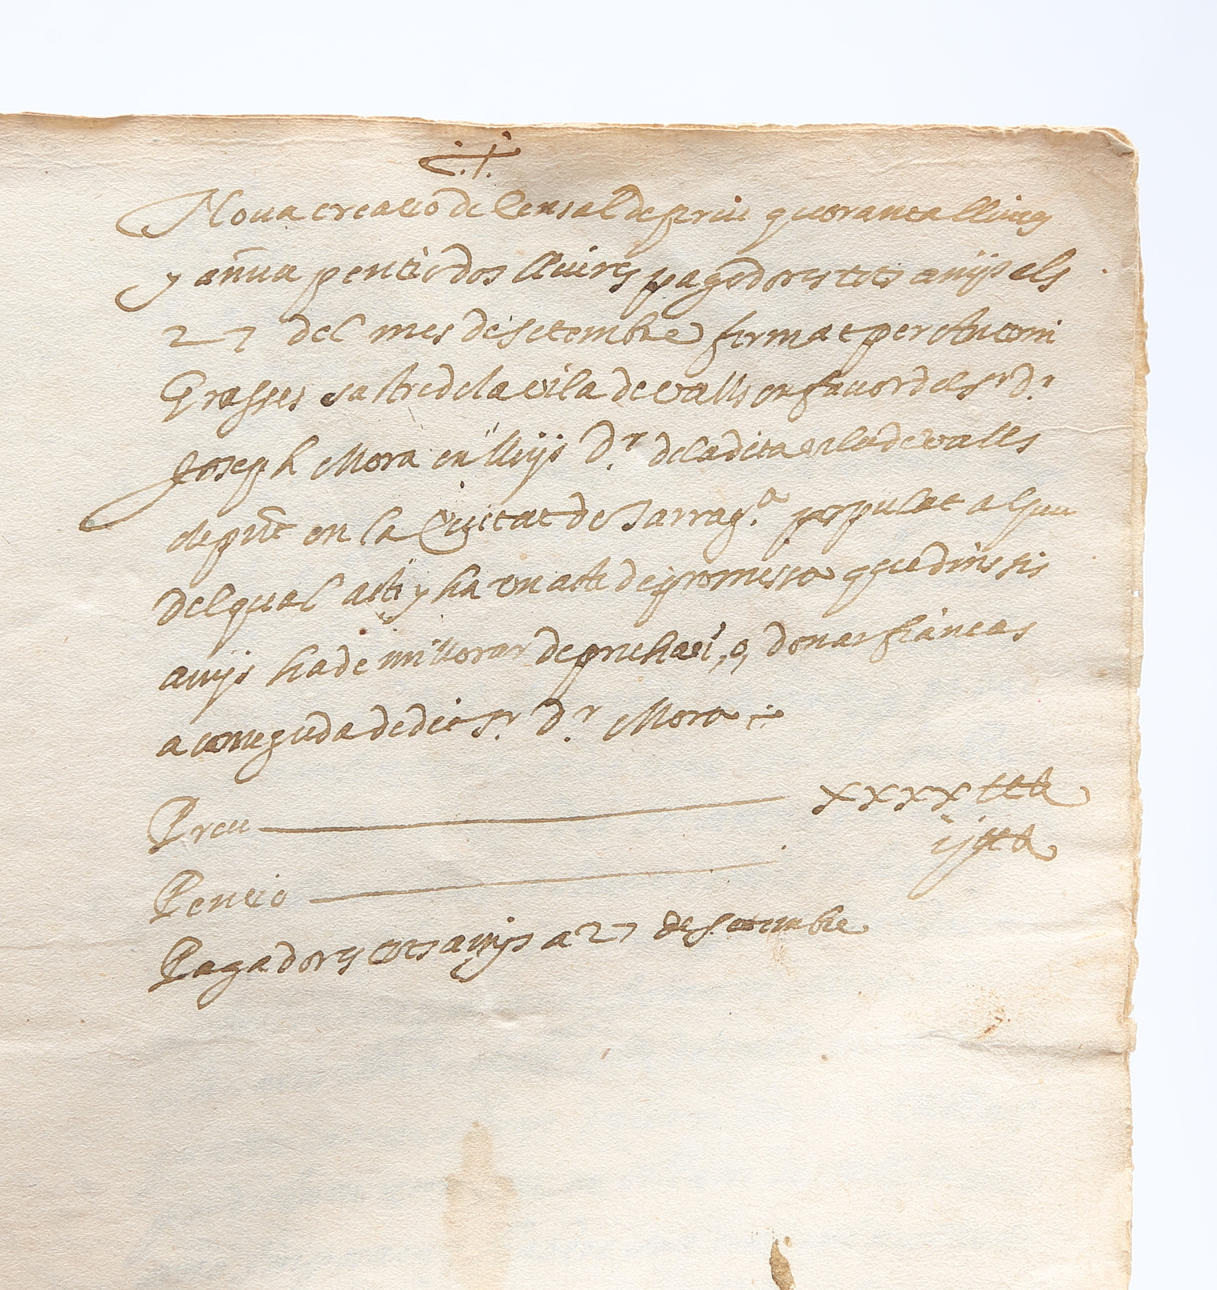 Noua creacio de Censal de preu quoranta lliures
y añua pencio dos lliures pagadores tots anijs als
27 del mes de setembre fermat per Antoni
Grasses sastre de la vila de valls en favor del Sr Dr
Joseph Mora en lleijs Dr de la dita vila de valls
de pnt en la Ciutat de Tarraga populat al peu
del qual acte y ha un acte de promissa que dins sis
anijs ha de millorar de, o, donar fiançes
a coneguda de dit Sr Dr Mora
Preu xxxx
Pencio ij
Pagadores tots anijs a 27 de setembre